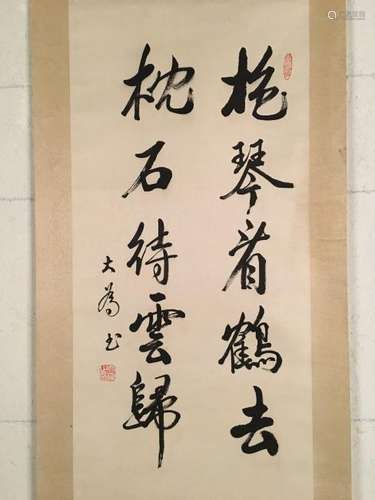 抱琴看鶴去
枕石待雲歸
大為书